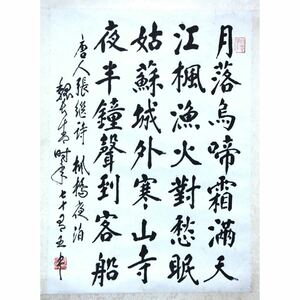 月落烏啼霜滿天
江楓漁火對愁眠
姑蘇城外寒山寺
夜半鐘聲到客船
唐人張继诗楓橋夜泊
時年七十有五